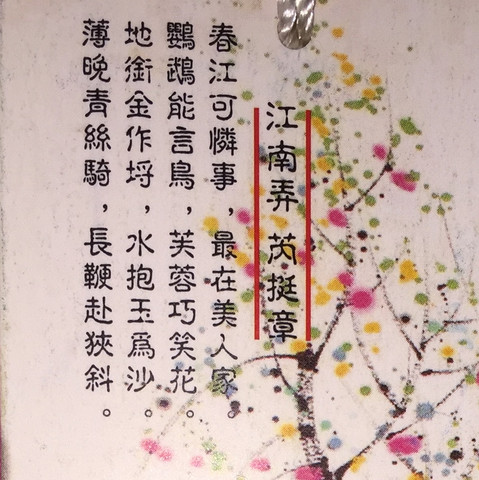 江南弄 芮挺章
春江可憐事，最在美人家。
鸚鵡能言鳥，芙蓉巧笑花。
地銜金作埒，水抱玉為沙。
薄晚青絲騎，長鞭赴狹斜。